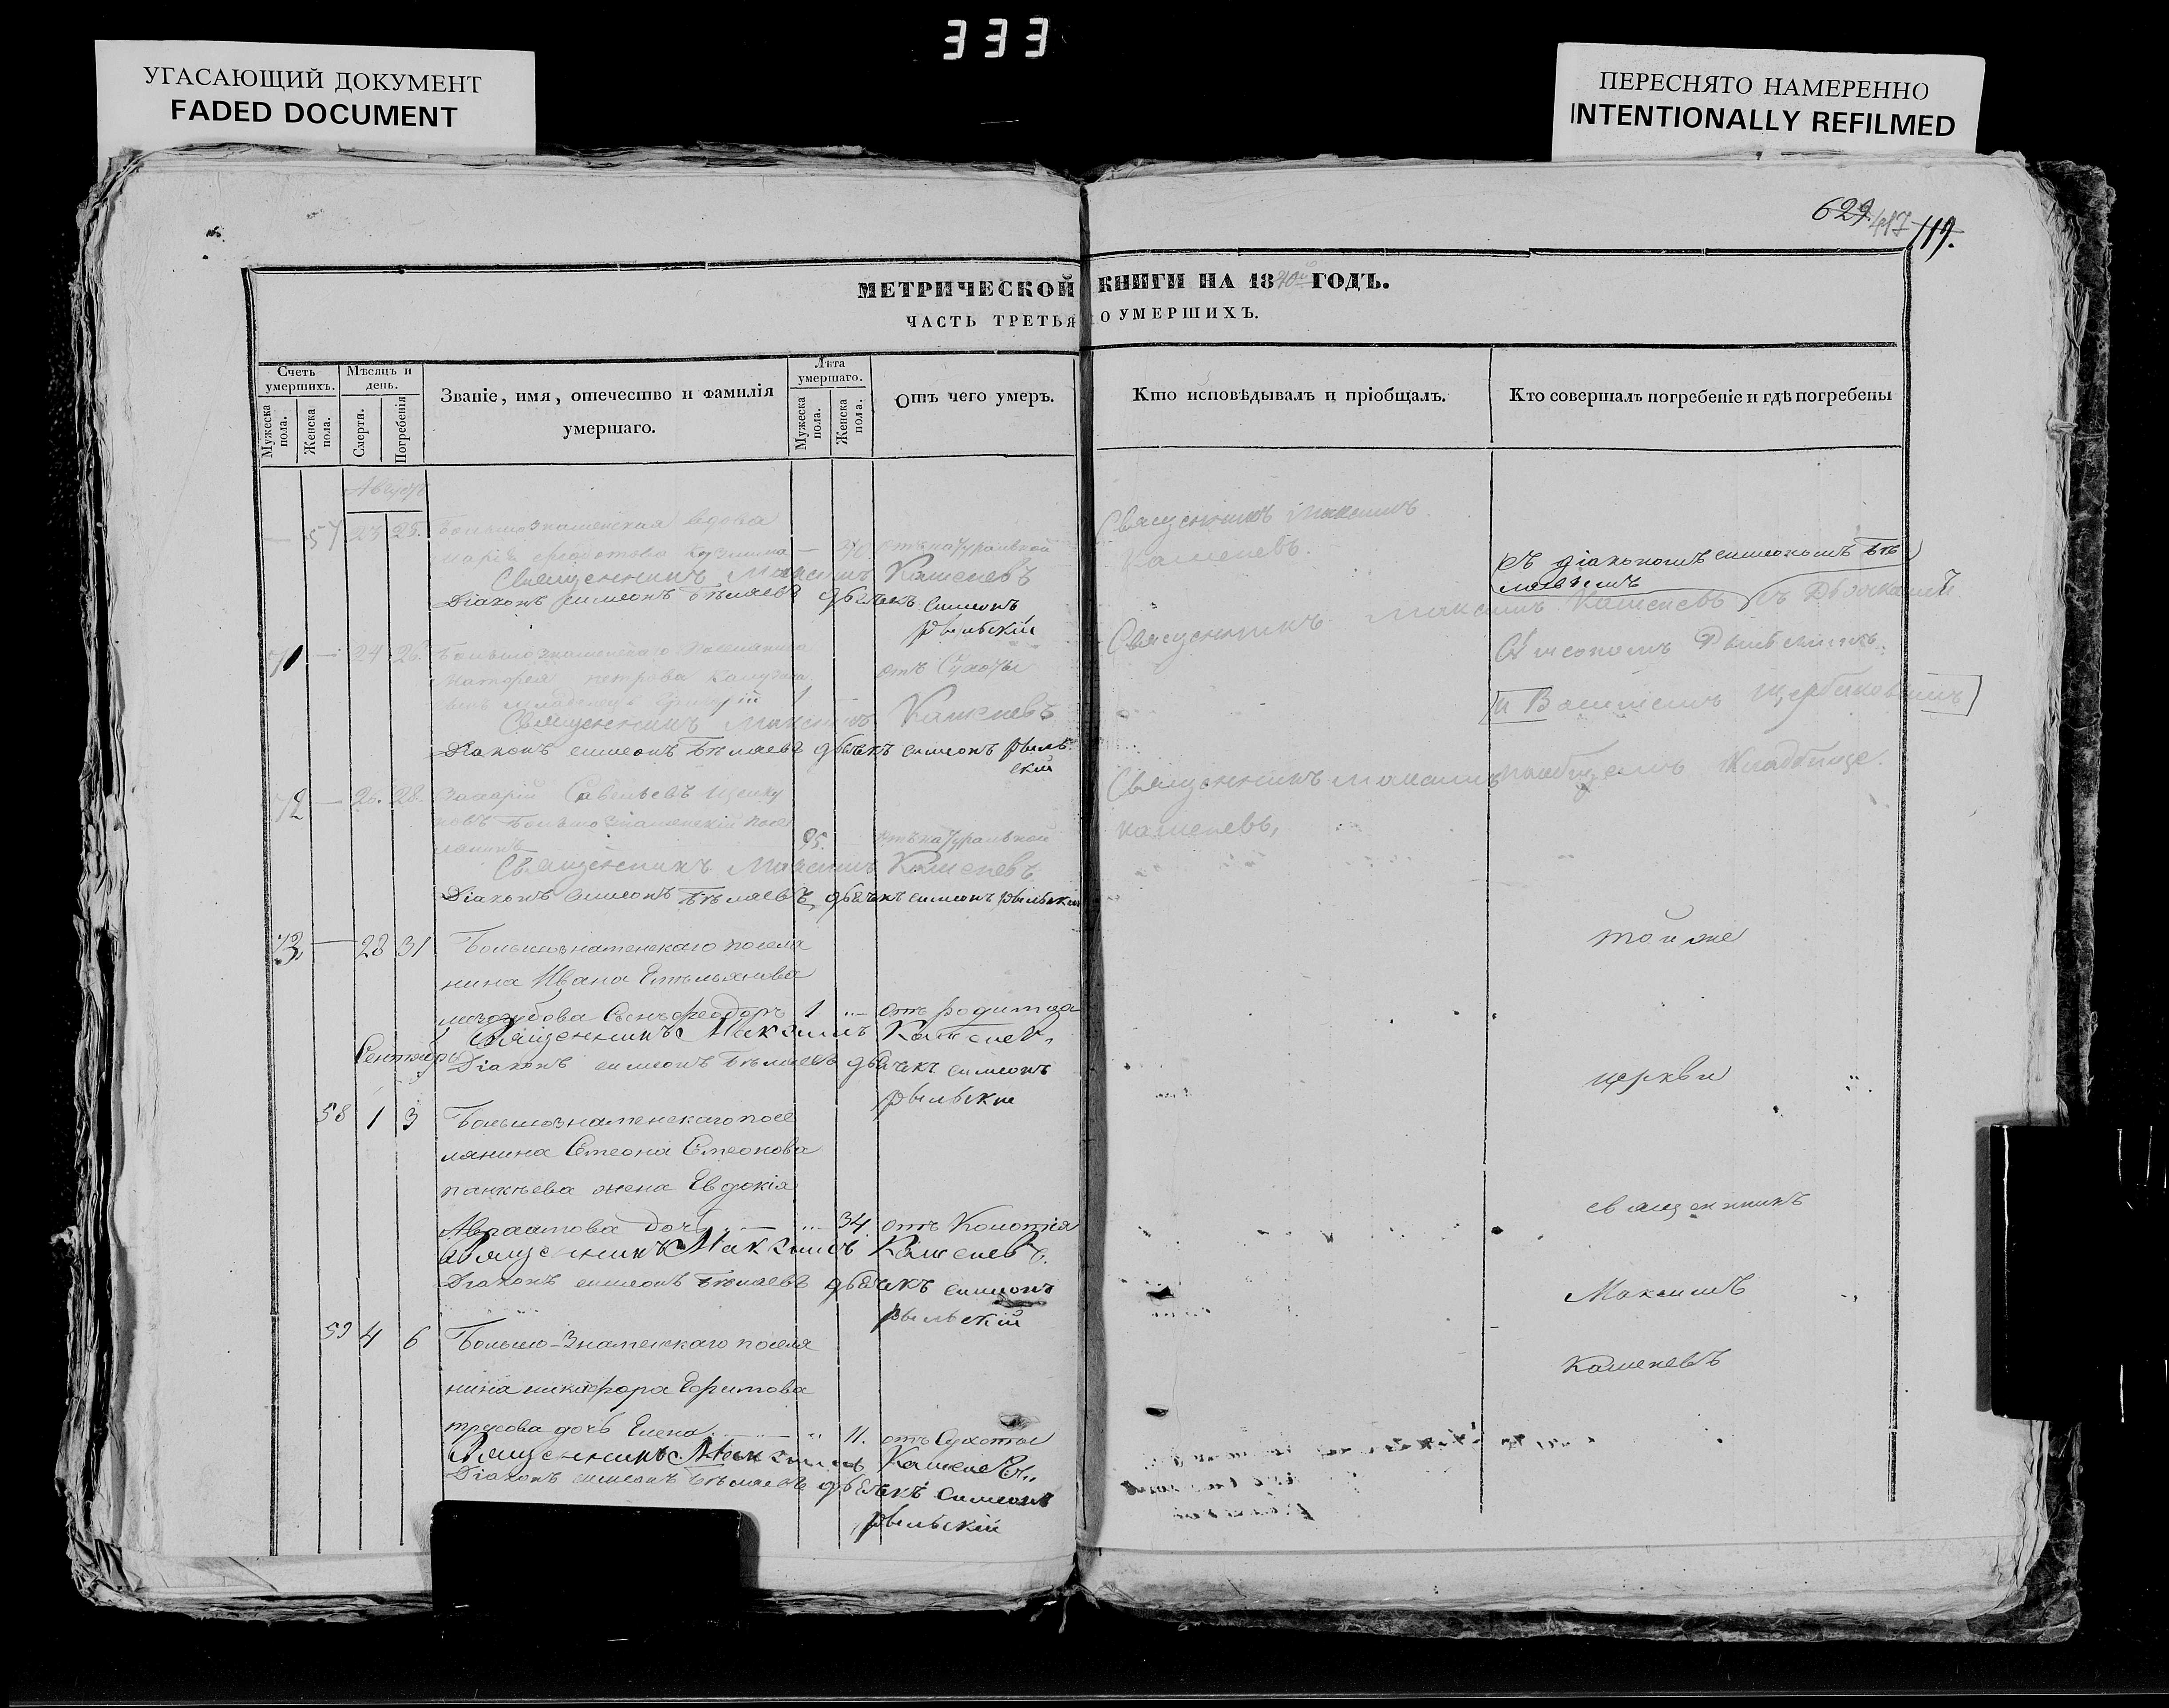 333
УГАСАЮЩИЙ ДОКУМЕНТ
FADED DOCUMENT
ПЕРЕСНЯТО НАМЕРЕННО
INTENTIONALLY REFILMED
629. 417 119.
МЕТРИЧЕСКОЙ КНИГИ НА 1840й ГОДЪ.
ЧАСТЬ ТРЕТЬЯ О УМЕРШИХЪ.
Счетъ умершихъ.
Мужеска пола.
Женска пола.
Мѣсяцъ и день.
Смерти.
Погребенія
Званіе, имя, отечество и фамилія
умершаго.
Лѣта умершаго.
Мужеска пола.
Женска пола.
Отъ чего умеръ.
Кто исповѣдывалъ и пріобщалъ.
Кто совершалъ погребеніе и гдѣ погребены
Августъ
— 57 23 25. Большознаменская вдова
марія федотова Кузмина — отъ натуральной
Священникъ Максимъ Каменевъ
Діаконъ симеонъ Бѣляевъ дьячекъ симеонъ
рыльскій
Священникъ Максимъ
Каменевъ.
съ діакономъ симеономъ Бѣ
ляевымъ
71 — 24 26. Большознаменскаго поселянина
петрова
сынъ младенецъ Григорій 1 — отъ Сухоты
Священникъ Максимъ Каменевъ
Діаконъ симеонъ Бѣляевъ дьячекъ симеонъ рыль
скій
Священникъ Максимъ Каменевъ съ Дьячками
Симеономъ Рыльскимъ
и Василіемъ Щербаковымъ
72 — 26. 28. Захарій Савельевъ
новъ Большознаменскій посе
лянинъ 95. отъ натуральной
Священникъ Максимъ Каменевъ
Діаконъ симеонъ Бѣляевъ дьячекъ симеонъ рыльскій
Священникъ Максимъ
каменевъ,
на общемъ Кладбище.
73 — 28 31 Большознаменскаго поселя
нина Ивана Емельянова
Сынъ феодоръ 1 „ — отъ родимца
Священникъ Максимъ Каменевъ
Сентябрь
Діаконъ симеонъ Бѣляевъ дьячекъ симеонъ
рыльскій
58 1 3 Большознаменскаго посе
лянина Симеона Симеонова
панкѣева жена Евдокія
Авраамова дочь — „ 34. отъ Колотія
Священникъ Максимъ Каменевъ.
Діаконъ симеонъ Бѣляевъ дьячекъ симеонъ
рыльскій
59 4 6 Большо-Знаменскаго поселя
нина никифора Ефимова
трусова дочь Елена. — „ 11. отъ Сухоты
Священникъ Максимъ Каменевъ„
Діаконъ симеонъ Бѣляевъ дьячекъ симеонъ
рыльскій
той же
церкви
священникъ
Максимъ
Каменевъ